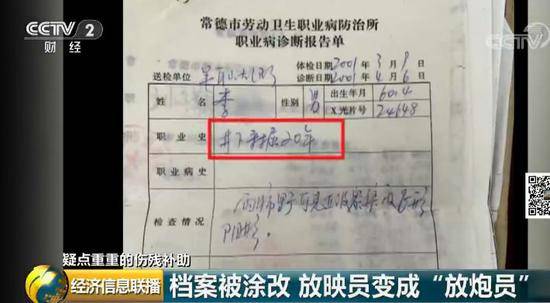 CCTV 2
财经
央视财经
常德市劳动卫生职业病防治所
职业病诊断报告单
体检日期2001年3月9日
送检单位
诊断日期2001年4月6日
姓名 李 性别 男 出生年月 60.4
X光片号 24648
职业史 井下采掘20年
职业病史
检查情况 两肺野可见
疑点重重的伤残补助
经济信息联播
档案被涂改 放映员变成“放炮员”